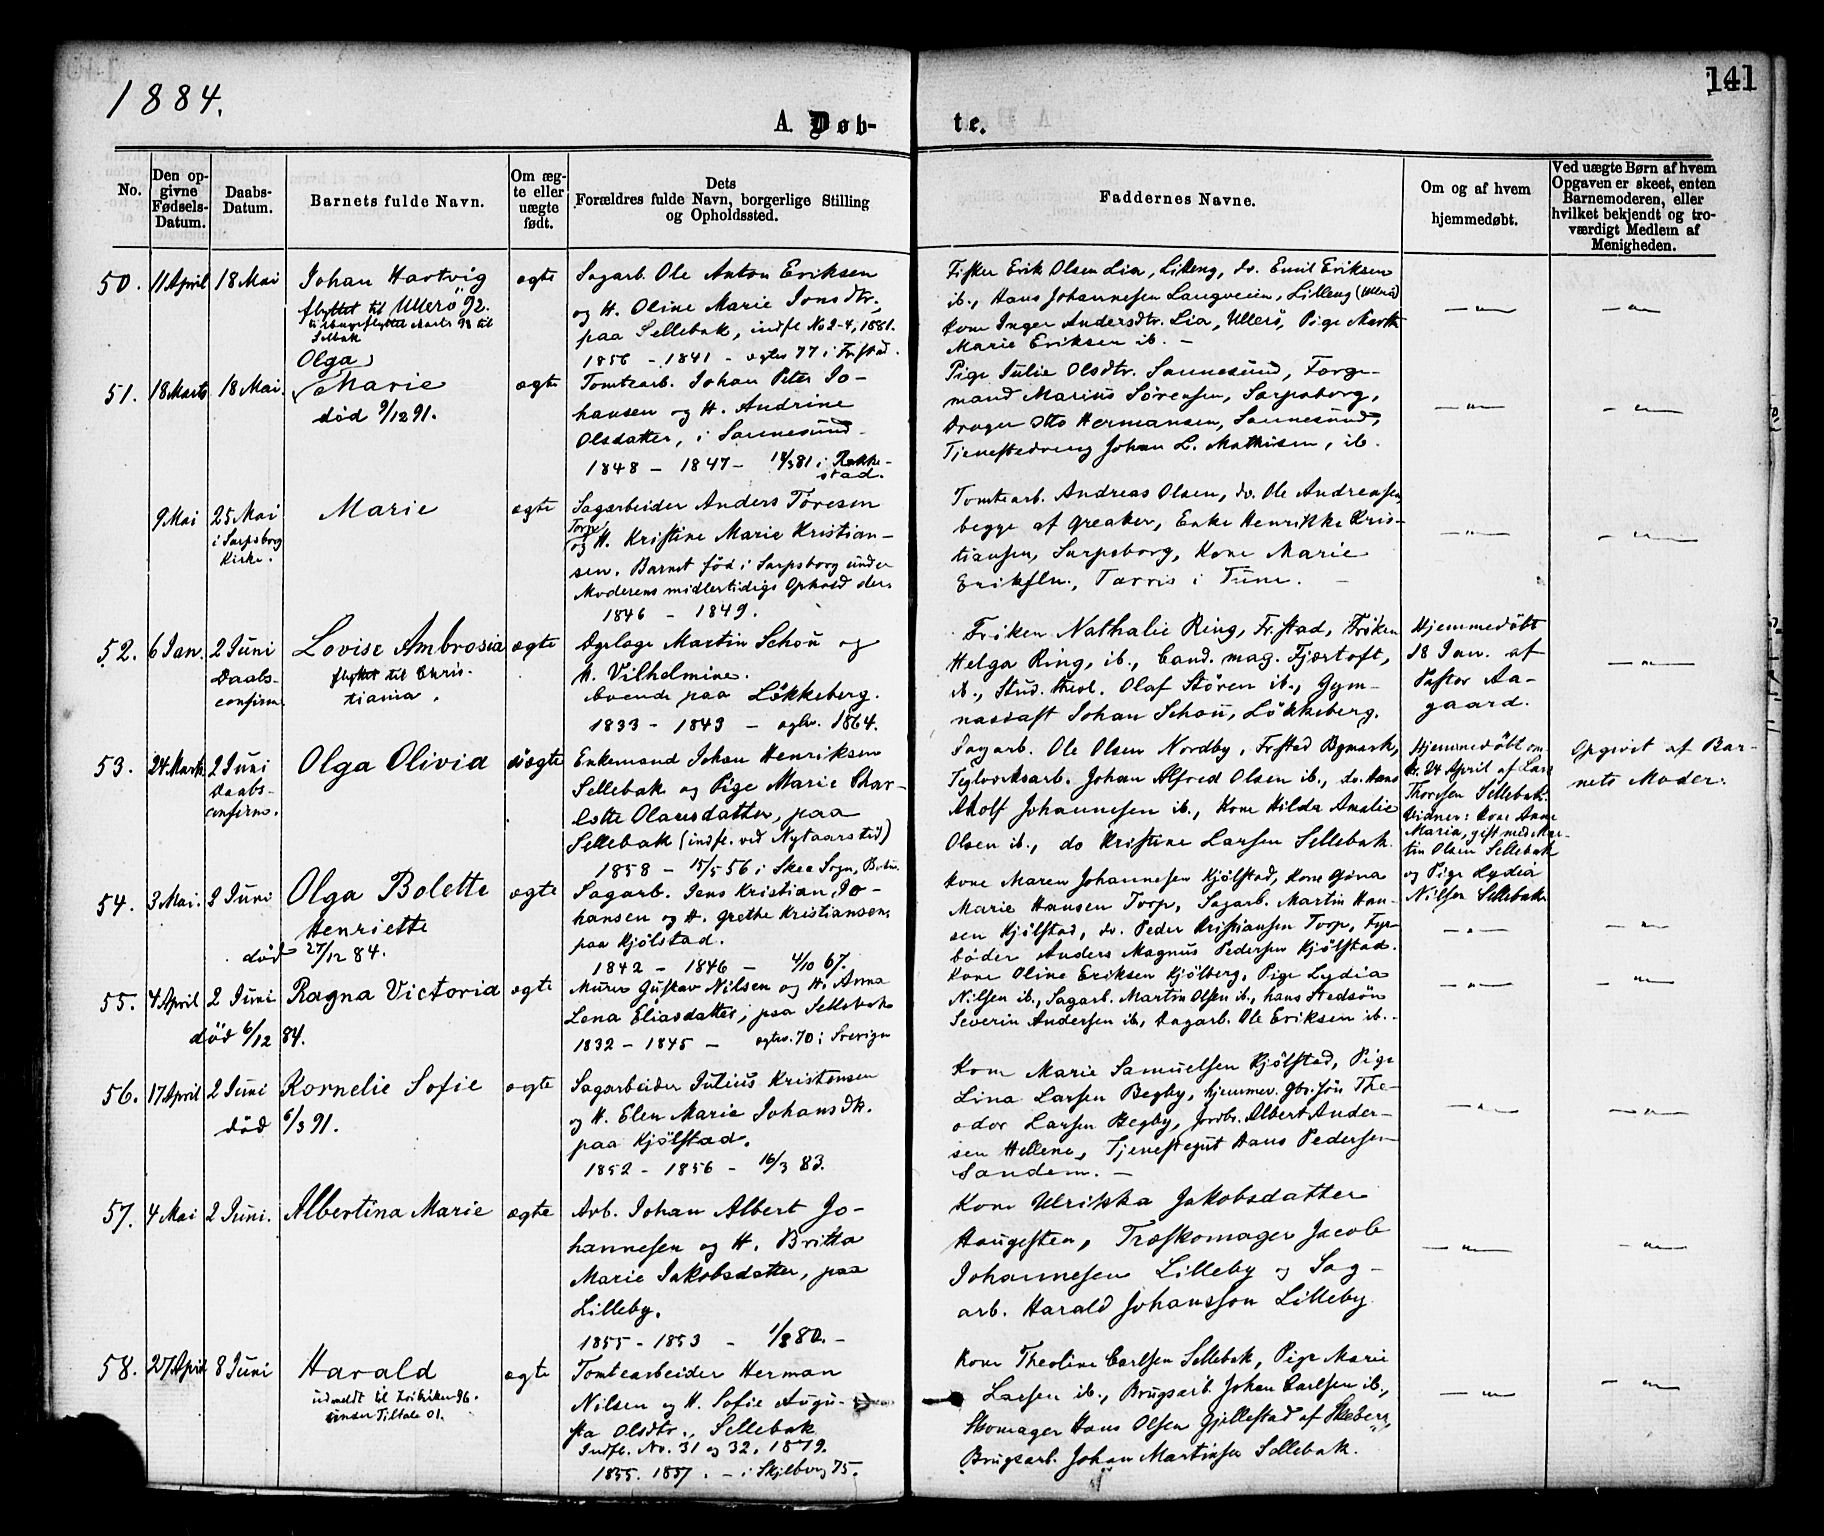 1884.
141
A. Døb-
te.
No.
Den op-
givne
Fødsels-
Datum.
Daabs-
Datum.
Barnets fulde Navn.
Om æg-
te eller
uægte
født.
Dets
Forældres fulde Navn, borgerlige Stilling
og Opholdssted.
Faddernes Navne.
Om og af hvem
hjemmedøbt.
Ved uægte Børn af hvem
Opgaven er skeet, enten
Barnemoderen, eller
hvilket bekjendt og tro-
værdigt Medlem af
Menigheden.
50. 11 April 18 Mai Johan Hartvig ægte
flyttet til Ullerö 92.
tilbageflyttet Marts 98 til
Selbak
Sagarb. Ole Anton Eriksen
og H. Oline Marie Jonsdtr,
paa Sellebak, indfl. No 2-4, 1881.
1856 - 1841 - ægtev 77 i Fr.stad.
Fisker Erik Olsen Lia, Lilleng, do. Emil Eriksen
ib., Hans Johannesen Langveien, Lilleng (Ullerö)
Kone Inger Andersdtr. Lia, Ullerö, Pige Marthe
Marie Eriksen ib. -
— „ —
— „ —
51. 18 Marts 18 Mai. Olga
Marie ægte
död 9/12 91.
Tomtearb. Johan Peter Jo-
hansen og H. Andrine
Olsdatter, i Sannesund
1848 - 1847 - 14/3 81 i Rakke-
stad.
Pige Julie Olsdtr. Sannesund, Forge-
mand Marius Sörensen, Sarpsborg,
Drager Otto Hermansen, Sannesund,
Tjenestedreng Johan L. Mathisen, ib.
— „ —
— „ —
9 Mai 25 Mai Marie ægte
i Sarpsborg
Kirke.
Sagarbeider Anders Toresen
Torp,
og H. Kristine Marie Kristian-
sen. Barnet föd i Sarpsborg under
Moderens midlertidige Ophold der.
1846 - 1849.
Tomtearb. Andreas Olsen, do. Ole Andreasen
begge af Greaker, Enke Henrikke Kris-
tiansen, Sarpsborg, Kone Marie
Eriksen., Tarris i Tune. -
— „ —
— „ —
52. 6 Jan. 2 Juni Lovise Ambrosia ægte
Daabs-
confirm.
flyttet til Chris-
tiania.
Dyrlæge Martin Schou og
H. Vilhelmine.
boende paa Lökkeberg.
1833 - 1843 - ægtev. 1864.
Fröken Nathalie Ring, Fr.stad, Fröken
Helga Ring, ib., Cand. mag. Fjærtoft,
ib., Stud. theol. Olaf Stören ib., Gym-
nasiast Johan Schou, Lökkeberg.
Hjemmedöbt
18 Jan. af
Pastor Aa-
gaard.
— „ —
53. 24 Marts 2 Juni Olga Olivia uægte
Daabs-
confirm.
Enkemand Johan Henriksen
Sellebak og Pige Marie Char-
lotte Olausdatter, paa
Sellebak (indfl. ved Nytaarstid)
1858 - 15/5 56 i Skee Sogn, Bohu.
Sagarb. Ole Olsen Nordby, Fr.stad Bymark,
Teglverksarb. Johan Alfred Olsen ib., do. Hans
Adolf Johannesen ib., Kone Hilda Amalie
Olsen ib., do Kristine Larsen Sellebak.
Hjemmedöbt om-
kr. 24 April af Lars
Thoresen Sellebak.
Vidner: Kone Anne
Maria, gift med Mar-
tin Olsen Sellebak
og Pige Lydia
Nilsen Sellebak.
Opgivet af Bar-
nets Moder.
54. 3 Mai. 2 Juni Olga Bolette ægte
Henriette
död 27/12 84.
Sagarb. Jens Kristian Jo-
hansen og H. Grethe Kristiansen,
paa Kjölstad.
1842 - 1846 - 4/10 67.
Kone Maren Johannesen Kjölstad, Kone Gina
Marie Hansen Torp, Sagarb. Martin Han-
sen Kjölstad, do. Peder Kristiansen Torp, Fyr-
böder Anders Magnus Pedersen Kjölstad.
— „ —
— „ —
55. 4 April 2 Juni Ragna Victoria ægte
död 6/12 84.
Murer Gustav Nilsen og H. Anna
Lena Eliasdatter, paa Sellebak
1832 - 1845 - ægtev. 70 i Sverige
Kone Oline Eriksen Kjölberg, Pige Lydia
Nilsen ib., Sagarb. Martin Olsen ib., hans Stedsön
Severin Andersen ib., Dagarb. Ole Eriksen ib.
— „ —
— „ —
56. 17 April 2 Juni Kornelie Sofie ægte
död 6/3 91.
Sagarbeider Julius Kristensen
og H. Elen Marie Johansdtr.
paa Kjölstad.
1852 - 1856 - 16/3 83.
Kone Marie Samuelsen Kjölstad, Pige
Lina Larsen Begby, hjemmev. Gbr.sön The-
odor Larsen Begby, Jordbr. Albert Ander-
sen Hellene, Tjenestegut Hans Pedersen
Sandem. -
— „ —
— „ —
57. 4 Mai 2 Juni. Albertina Marie ægte
Arb. Johan Albert Jo-
hannesen og H. Britha
Marie Jakobsdatter, paa
Lilleby.
1855 - 1853 - 1/8 80. -
Kone Ulrikka Jakobsdatter
Haugesten, Træskomager Jacob
Johannesen Lilleby og Sag-
arb. Harald Johansson Lilleby
— „ —
— „ —
58. 27 April 8 Juni Harald ægte
udmeldt til
under Tiltale 01.
Tomtearbeider Herman
Nilsen og H. Sofie Augu-
sta Olsdtr., Sellebak
Indfl. No. 31 og 32, 1879.
1855. 1857. - i Skjeberg 75.
Kone Theoline Carlsen Sellebak, Pige Marie
Larsen ib., Brugsarb. Johan Carlsen ib.,
Skomager Hans Olsen Gjellestad af Skeberg,
Brugsarb. Johan Martinsen Sellebak.
— „ —
— „ —